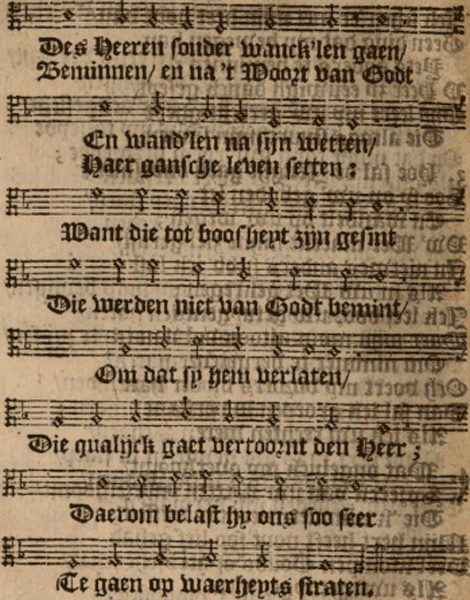 Des Heeren sonder wanck'len gaen/
Beminnen/ en na 't Woort van Godt
En wand'len na sijn wetten/
Haer gansche leven setten:
Want die tot boosheyt zijn gesint
Die werden niet van Godt bemint/
Om dat sy hem verlaten/
Die qualijck gaet vertoornt den Heer;
Daerom belast hy ons soo seer
Te gaen op waerheyts straten.